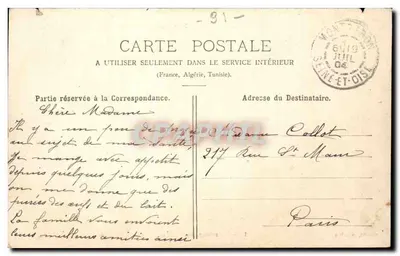 91-
CARTE POSTALE
A UTILISER SEULEMENT DANS LE SERVICE INTÉRIEUR
(France, Algérie, Tunisie).
19
JUIL
04
SEINE-ET-OISE
Partie réservée à la Correspondance.
Adresse du Destinataire.
Chère Madame
Il y a un peu de
au sujet de ma santé,
je mange avec appétit
depuis quelques jours, mais
on me donne que des
purées des œufs et du lait.
La famille vous envoient
leurs meilleurs amitiés ainsi
Madame Collot
217 Rue St Maur
Paris